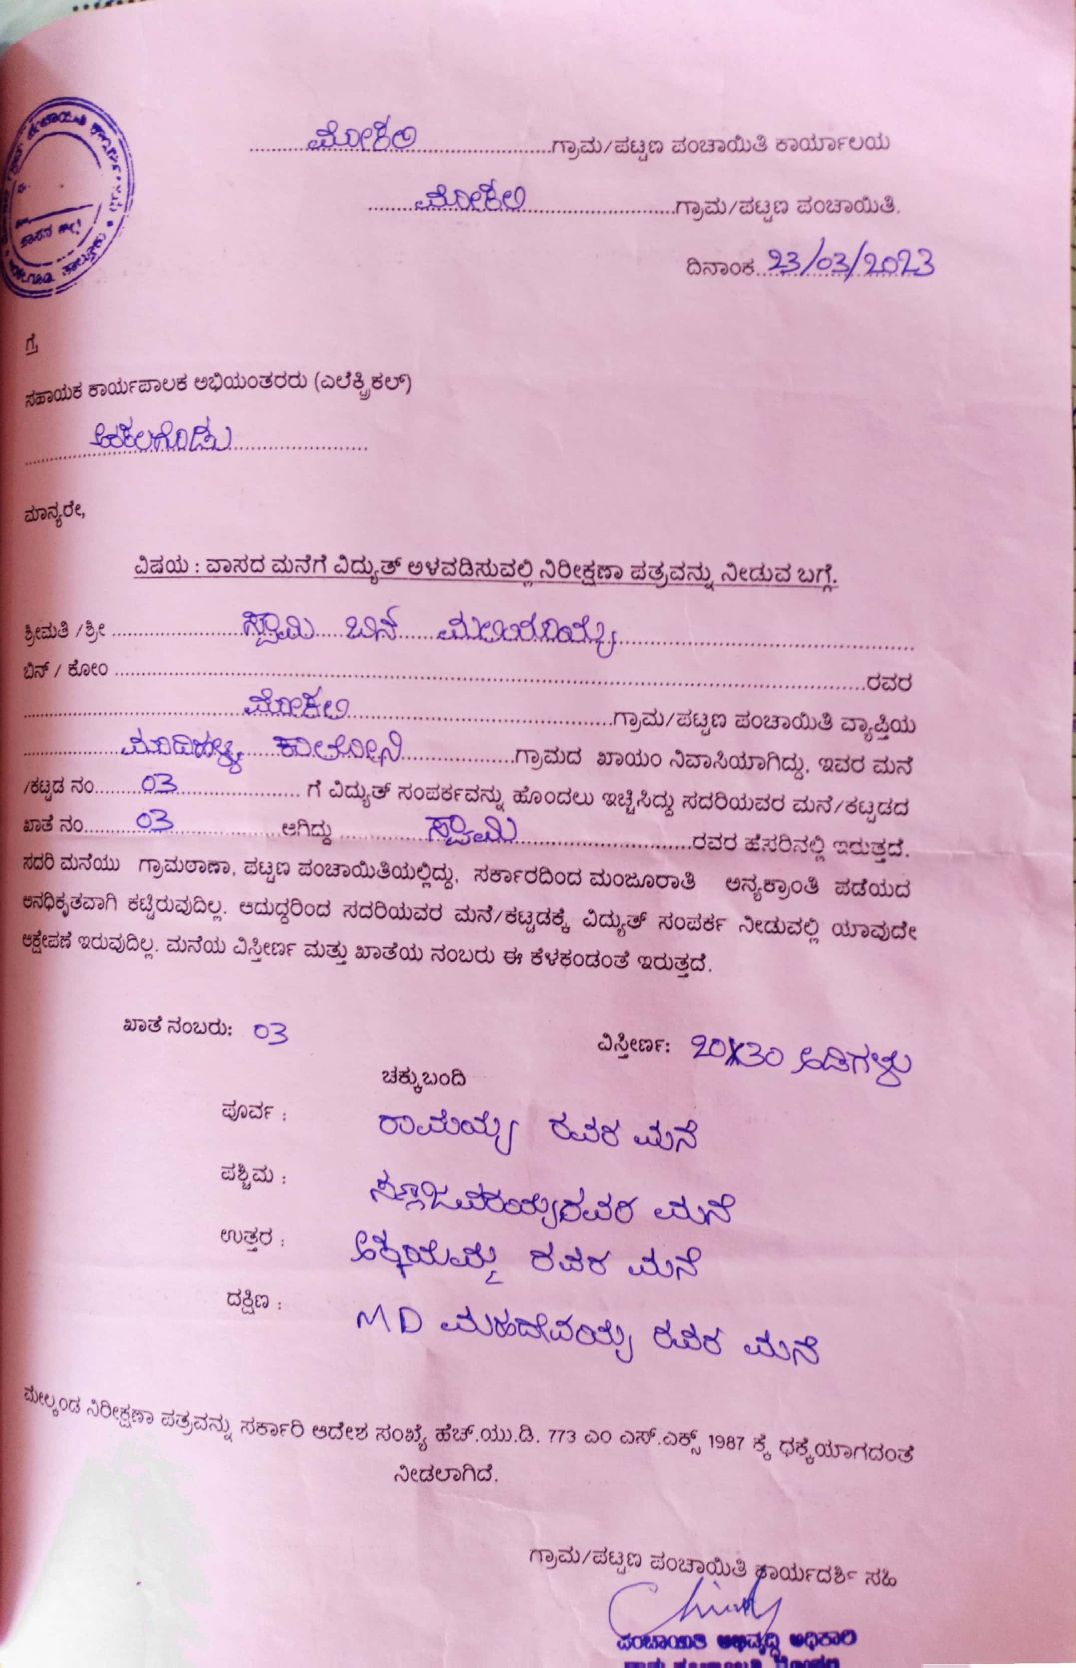 ಮೋಕಲಿ ಗ್ರಾಮ/ಪಟ್ಟಣ ಪಂಚಾಯಿತಿ ಕಾರ್ಯಾಲಯ
ಮೋಕಲಿ ಗ್ರಾಮ/ಪಟ್ಟಣ ಪಂಚಾಯಿತಿ.
ದಿನಾಂಕ 23/03/2023
ಗೆ,
ಸಹಾಯಕ ಕಾರ್ಯಪಾಲಕ ಅಭಿಯಂತರರು (ಎಲೆಕ್ಟ್ರಿಕಲ್)
ಮಾನ್ಯರೇ,
ವಿಷಯ : ವಾಸದ ಮನೆಗೆ ವಿದ್ಯುತ್ ಅಳವಡಿಸುವಲ್ಲಿ ನಿರೀಕ್ಷಣಾ ಪತ್ರವನ್ನು ನೀಡುವ ಬಗ್ಗೆ.
ಶ್ರೀಮತಿ /ಶ್ರೀ ಸ್ವಾಮಿ ಬಿನ್
ಬಿನ್ / ಕೋಂ ರವರ
ಮೋಕಲಿ ಗ್ರಾಮ/ಪಟ್ಟಣ ಪಂಚಾಯಿತಿ ವ್ಯಾಪ್ತಿಯ
ಗ್ರಾಮದ ಖಾಯಂ ನಿವಾಸಿಯಾಗಿದ್ದು, ಇವರ ಮನೆ
/ಕಟ್ಟಡ ನಂ 03 ಗೆ ವಿದ್ಯುತ್ ಸಂಪರ್ಕವನ್ನು ಹೊಂದಲು ಇಚ್ಛಿಸಿದ್ದು ಸದರಿಯವರ ಮನೆ/ಕಟ್ಟಡದ
ಖಾತೆ ನಂ 03 ಆಗಿದ್ದು ಸ್ವಾಮಿ ರವರ ಹೆಸರಿನಲ್ಲಿ ಇರುತ್ತದೆ.
ಸದರಿ ಮನೆಯು ಗ್ರಾಮಠಾಣಾ, ಪಟ್ಟಣ ಪಂಚಾಯಿತಿಯಲ್ಲಿದ್ದು, ಸರ್ಕಾರದಿಂದ ಮಂಜೂರಾತಿ ಅನ್ಯಕ್ರಾಂತಿ ಪಡೆಯದ
ಅನಧಿಕೃತವಾಗಿ ಕಟ್ಟಿರುವುದಿಲ್ಲ. ಆದುದ್ದರಿಂದ ಸದರಿಯವರ ಮನೆ/ಕಟ್ಟಡಕ್ಕೆ ವಿದ್ಯುತ್ ಸಂಪರ್ಕ ನೀಡುವಲ್ಲಿ ಯಾವುದೇ
ಆಕ್ಷೇಪಣೆ ಇರುವುದಿಲ್ಲ. ಮನೆಯ ವಿಸ್ತೀರ್ಣ ಮತ್ತು ಖಾತೆಯ ನಂಬರು ಈ ಕೆಳಕಂಡಂತೆ ಇರುತ್ತದೆ.
ಖಾತೆ ನಂಬರು: 03 ವಿಸ್ತೀರ್ಣ: 20X30 ಅಡಿಗಳು
ಚಕ್ಕುಬಂದಿ
ಪೂರ್ವ : ರಾಮಯ್ಯ ರವರ ಮನೆ
ಪಶ್ಚಿಮ : ರವರ ಮನೆ
ಉತ್ತರ : ರವರ ಮನೆ
ದಕ್ಷಿಣ : MD ಮಹದೇವಯ್ಯ ರವರ ಮನೆ
ಮೇಲ್ಕಂಡ ನಿರೀಕ್ಷಣಾ ಪತ್ರವನ್ನು ಸರ್ಕಾರಿ ಆದೇಶ ಸಂಖ್ಯೆ ಹೆಚ್.ಯು.ಡಿ. 773 ಎಂ ಎಸ್.ಎಕ್ಸ್ 1987 ಕ್ಕೆ ಧಕ್ಕೆಯಾಗದಂತೆ
ನೀಡಲಾಗಿದೆ.
ಗ್ರಾಮ/ಪಟ್ಟಣ ಪಂಚಾಯಿತಿ ಕಾರ್ಯದರ್ಶಿ ಸಹಿ
ಪಂಚಾಯಿತಿ ಅಭಿವೃದ್ಧಿ ಅಧಿಕಾರಿ